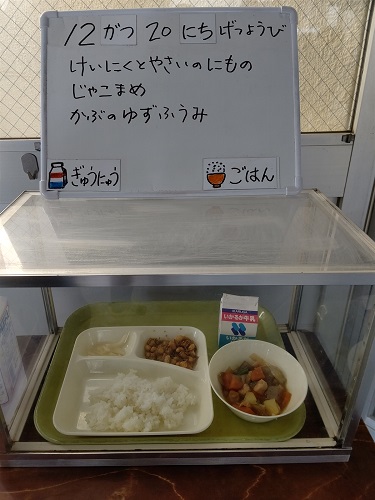 12 がつ 20 にち げつようび
けいにくとやさいのにもの
じゃこまめ
かぶのゆずふうみ
ぎゅうにゅう
ごはん
いかるが牛乳